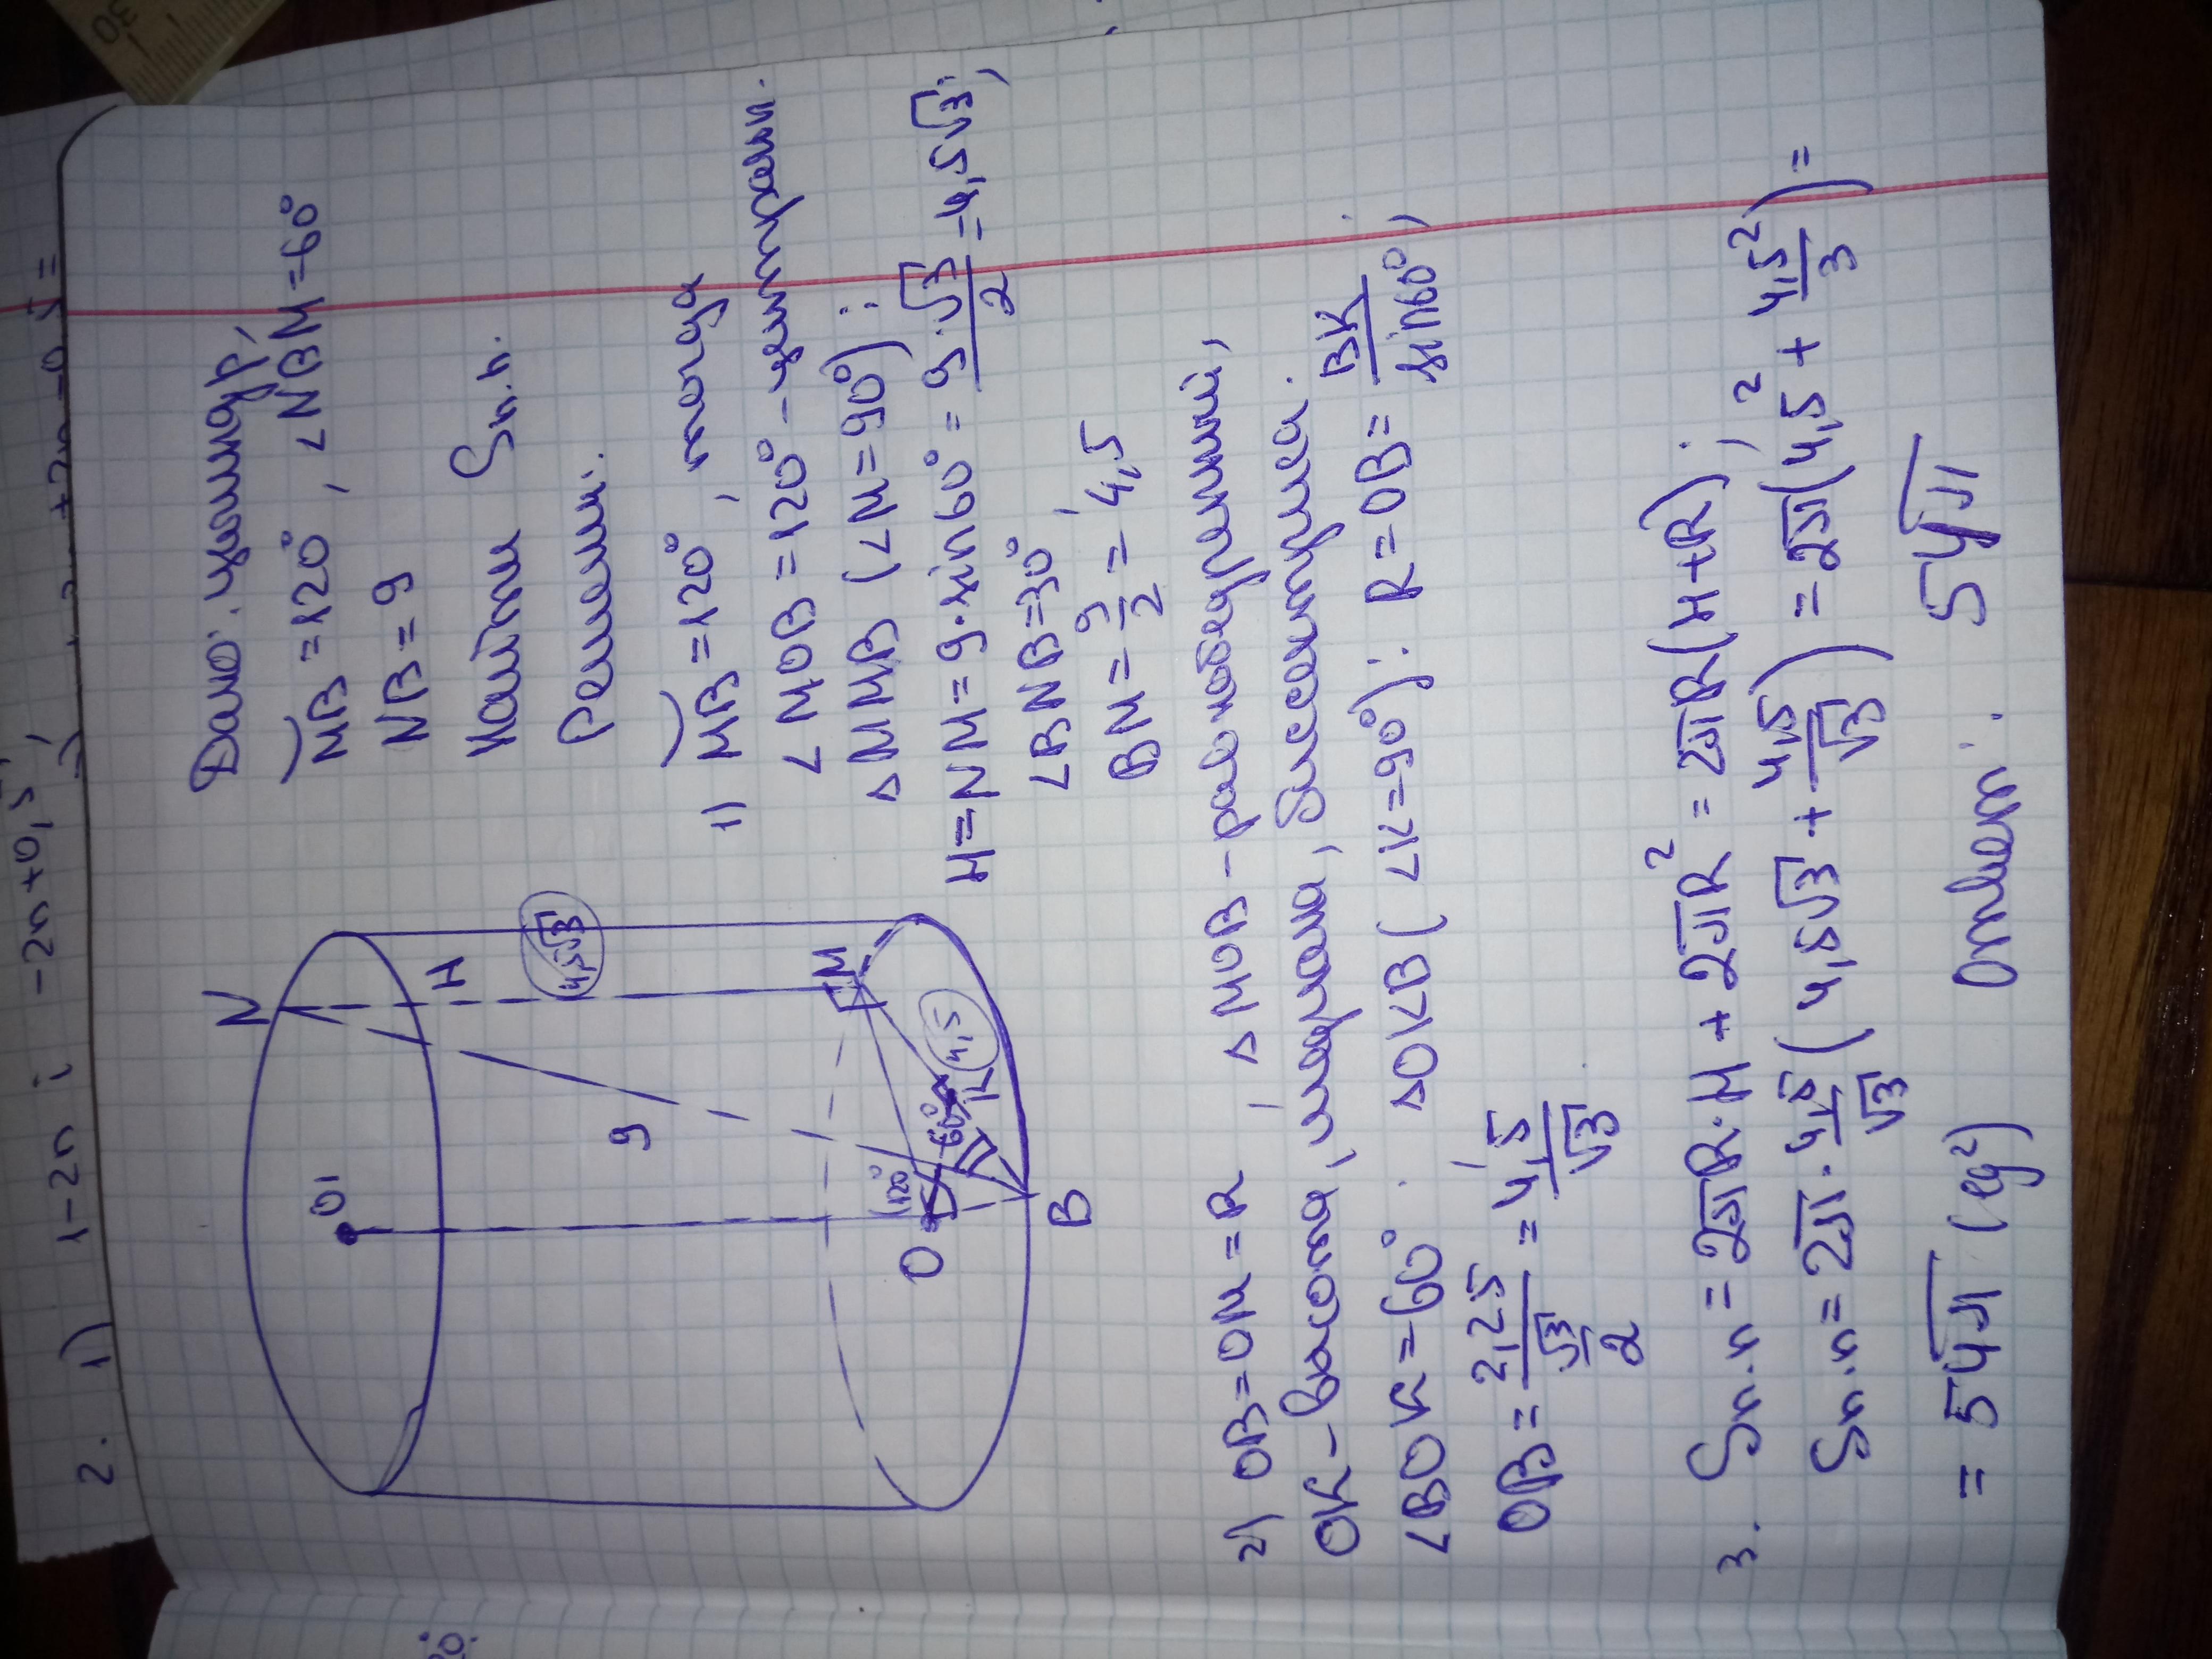 30
2. 1) 1-2n
-2n+0,5
Дано: цилиндр,
MB=120°, ∠NBM=60°
NB=9
Найти Sп.п.
Решени:
1) MB=120°, тогда
∠MOB=120°-централн.
△NMB (∠M=90°):
H=NM=9·sin60°=9·√3/2=4,5√3;
∠BNM=30°
BM=9/2=4,5
N
O1
H
4,5√3
9
M
120°
60°
4,5
K
O
B
2) OB=OM=R, △MOB-равнобедренный,
OK-высота, медиана, биссектриса.
∠BOK=60°. △OKB (∠K=90°): R=OB=BK/sin60°;
OB=2,25/(√3/2)=4,5/√3
3. Sп.п=2πR·H+2πR²=2πR(H+R);
Sп.п=2π·4,5/√3(4,5√3+4,5/√3)=2π(4,5²+4,5²/3)=
=54π (ед²) Ответ: 54π